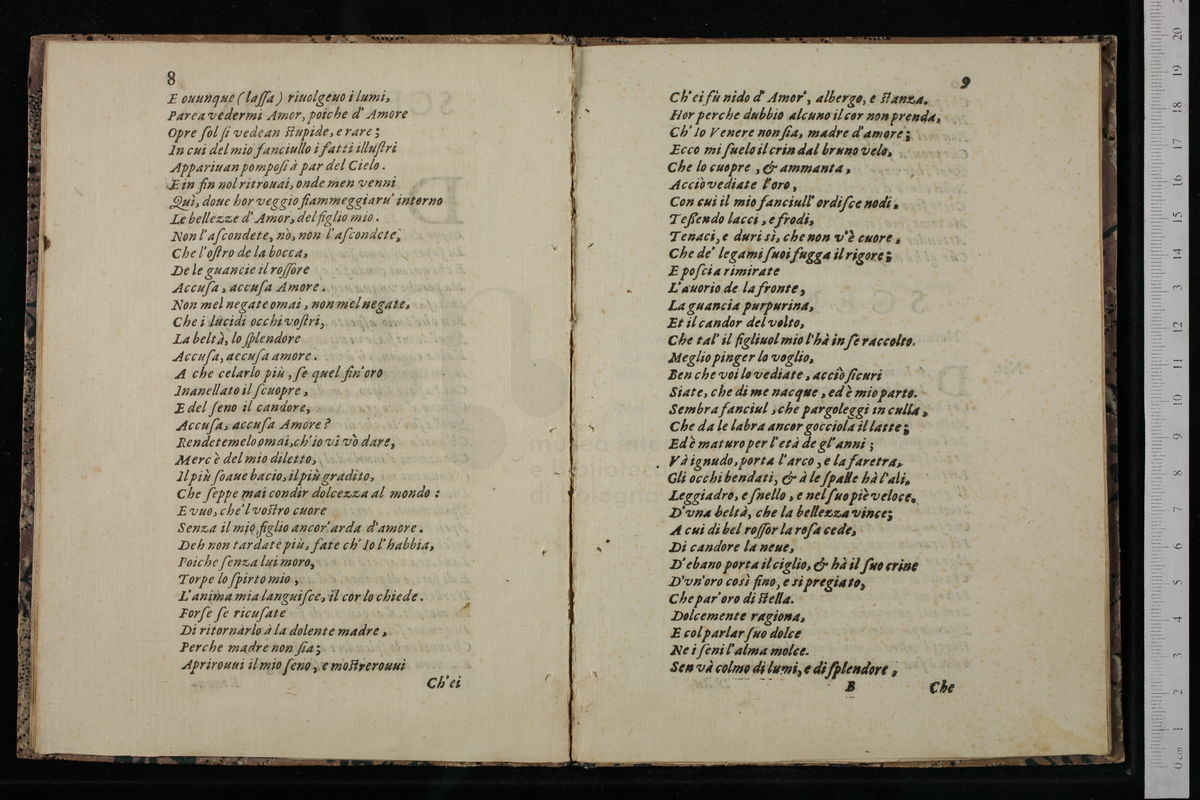 8
E ouunque (laſſa) riuolgeuo i lumi,
Parea vedermi Amor, poiche d' Amore
Opre ſol ſi vedean ſtupide, e rare;
In cui del mio fanciullo i fatti illuſtri
Appariuan pompoſi à par del Cielo.
E in fin nol ritrouai, onde men venni
Quì, doue hor veggio fiammeggiaru' intorno
Le bellezze d' Amor, del figlio mio.
Non l'aſcondete, nò, non l'aſcondete,
Che l'oſtro de la bocca,
De le guancie il roſſore
Accuſa, accuſa Amore.
Non mel negate omai, non mel negate,
Che i lucidi occhi voſtri,
La beltà, lo ſplendore
Accuſa, accuſa amore.
A che celarlo più, ſe quel fin'oro
Inanellato il ſcuopre,
E del ſeno il candore,
Accuſa, accuſa Amore?
Rendetemelo omai, ch'io vi vò dare,
Mercè del mio diletto,
Il più ſoaue bacio, il più gradito,
Che ſeppe mai condir dolcezza al mondo:
E vuo, che'l voſtro cuore
Senza il mio figlio ancor'arda d'amore.
Deh non tardate più, fate ch' Io l'habbia,
Poiche ſenza lui moro,
Torpe lo ſpirto mio,
L'anima mia languiſce, il cor lo chiede.
Forſe ſe ricuſate
Di ritornarlo à la dolente madre,
Perche madre non ſia;
Aprirouui il mio ſeno, e moſtrerouui
Ch'ei
9
Ch'ei fù nido d' Amor', albergo, e ſtanza.
Hor perche dubbio alcuno il cor non prenda,
Ch' Io Venere non ſia, madre d'amore;
Ecco mi ſuelo il crin dal bruno velo,
Che lo cuopre, & ammanta,
Acciò vediate l'oro,
Con cui il mio fanciull' ordiſce nodi,
Teßendo lacci, e frodi,
Tenaci, e duri sì, che non v'è cuore,
Che de' legami ſuoi fugga il rigore;
E poſcia rimirate
L'auorio de la fronte,
La guancia purpurina,
Et il candor del volto,
Che tal' il figliuol mio l'hà in ſe raccolto.
Meglio pinger lo voglio,
Ben che voi lo vediate, acciò ſicuri
Siate, che di me nacque, ed è mio parto.
Sembra fanciul, che pargoleggi in culla,
Che da le labra ancor gocciola il latte;
Ed è maturo per l'età de gl'anni;
Và ignudo, porta l'arco, e la faretra,
Gli occhi bendati, & à le ſpalle hà l'ali,
Leggiadro, e ſnello, e nel ſuo piè veloce.
D'vna beltà, che la bellezza vince;
A cui di bel roſſor la roſa cede,
Di candore la neue,
D'ebano porta il ciglio, & hà il ſuo crine
D'vn'oro così fino, e sì pregiato,
Che par'oro di ſtella.
Dolcemente ragiona,
E col parlar ſuo dolce
Ne i ſeni l'alma molce.
Sen và colmo di lumi, e di ſplendore,
B Che